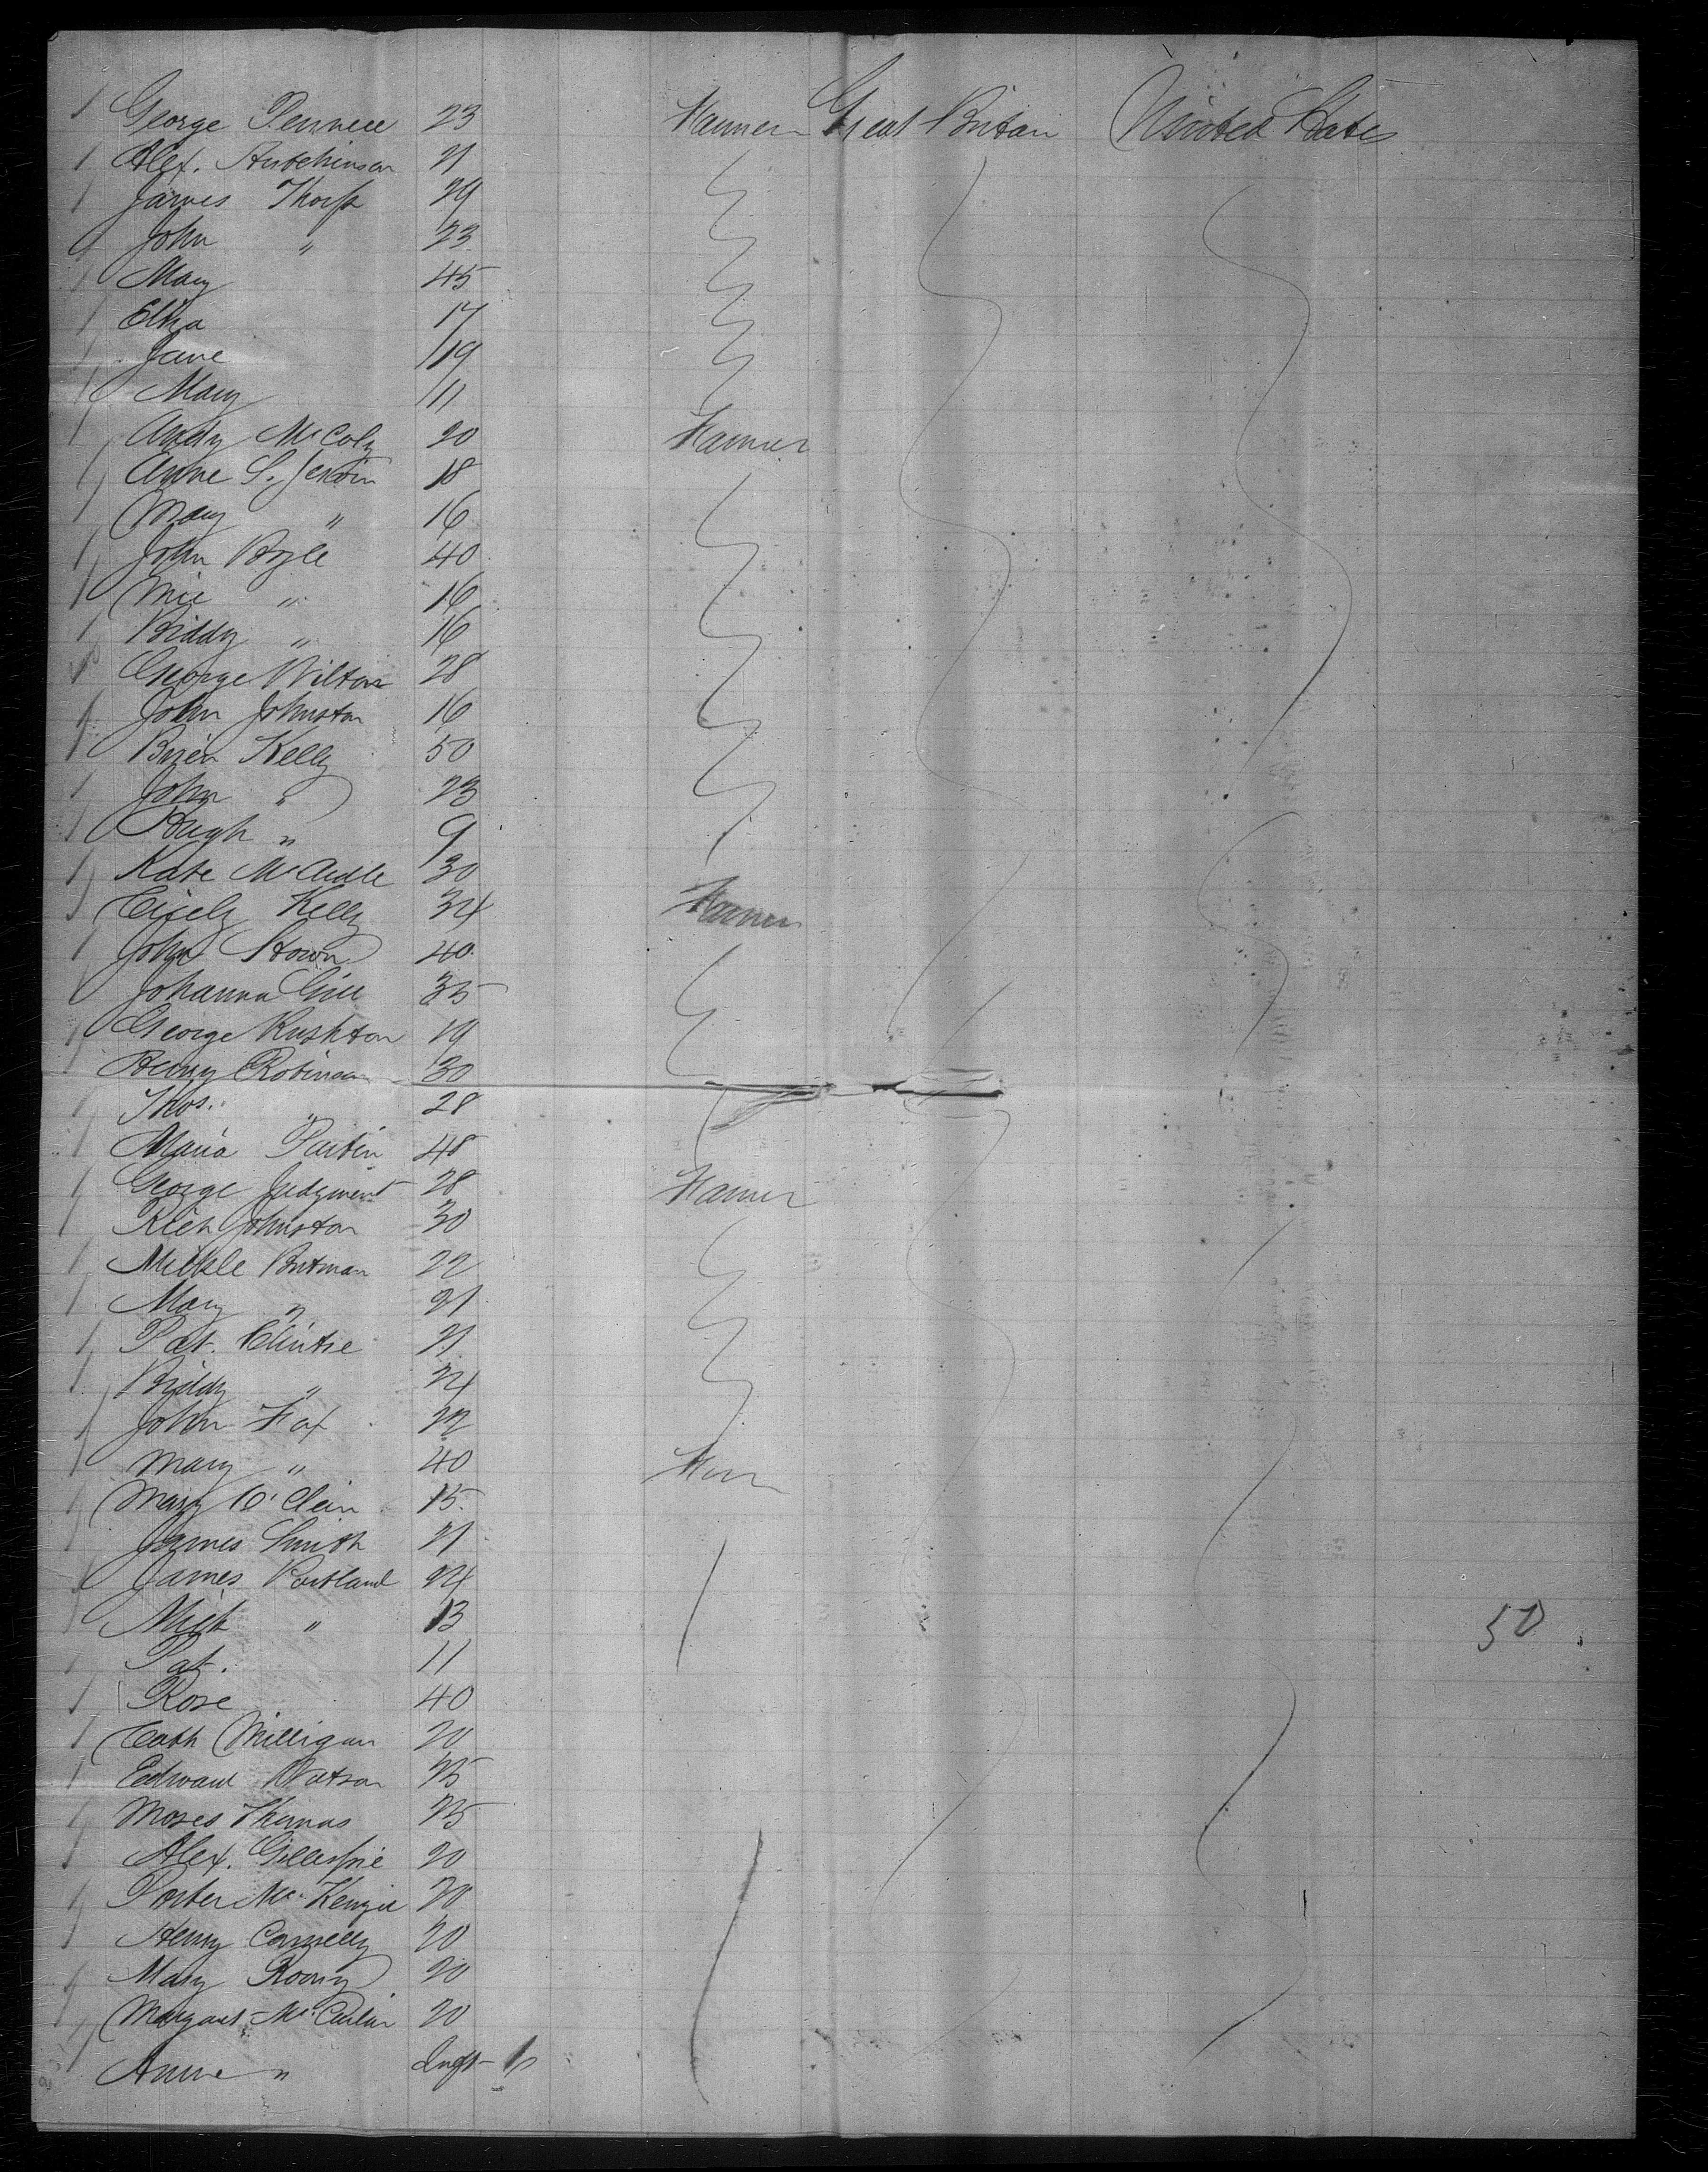 George Pennell 23 Farmer Great Britain United States
Alex. Hutchinson 21
James Thorp 29
John " 23
Mary 45
Eliza 17
Jane 19
Mary 11
Andy McColy 20 Farmer
Anne S. 18
Mary " 16
John Boyle 40
Mic " 16
Biddy " 16
George Wilton 28
John Johnston 16
Brien Kelly 50
John " 23
Hugh " 9
Kate McArdle 30
Cicely Kelly 34 Farmer
John 40
Johanna Gill 35
George Rushton 19
Henry Robinson 30
Thos. " 28
Maria 48
George Judgment 28 Farmer
Rich Johnston 30
Mickle 22
Mary " 21
Pat. Clintie 21
Biddy " 24
John Fox 22
Mary " 40
Mary O'Clein 15
James Smith 21
James Portland 24
Mich " 13 50
Pat. 11
Rose 40
Cath Milligan 20
Edward Watson 25
Moses Thomas 25
Alex. Gillespie 20
Porter McKenzie 20
Henry Connelly 20
Mary Roony 20
Margaret Mc 20
Anne " Inft